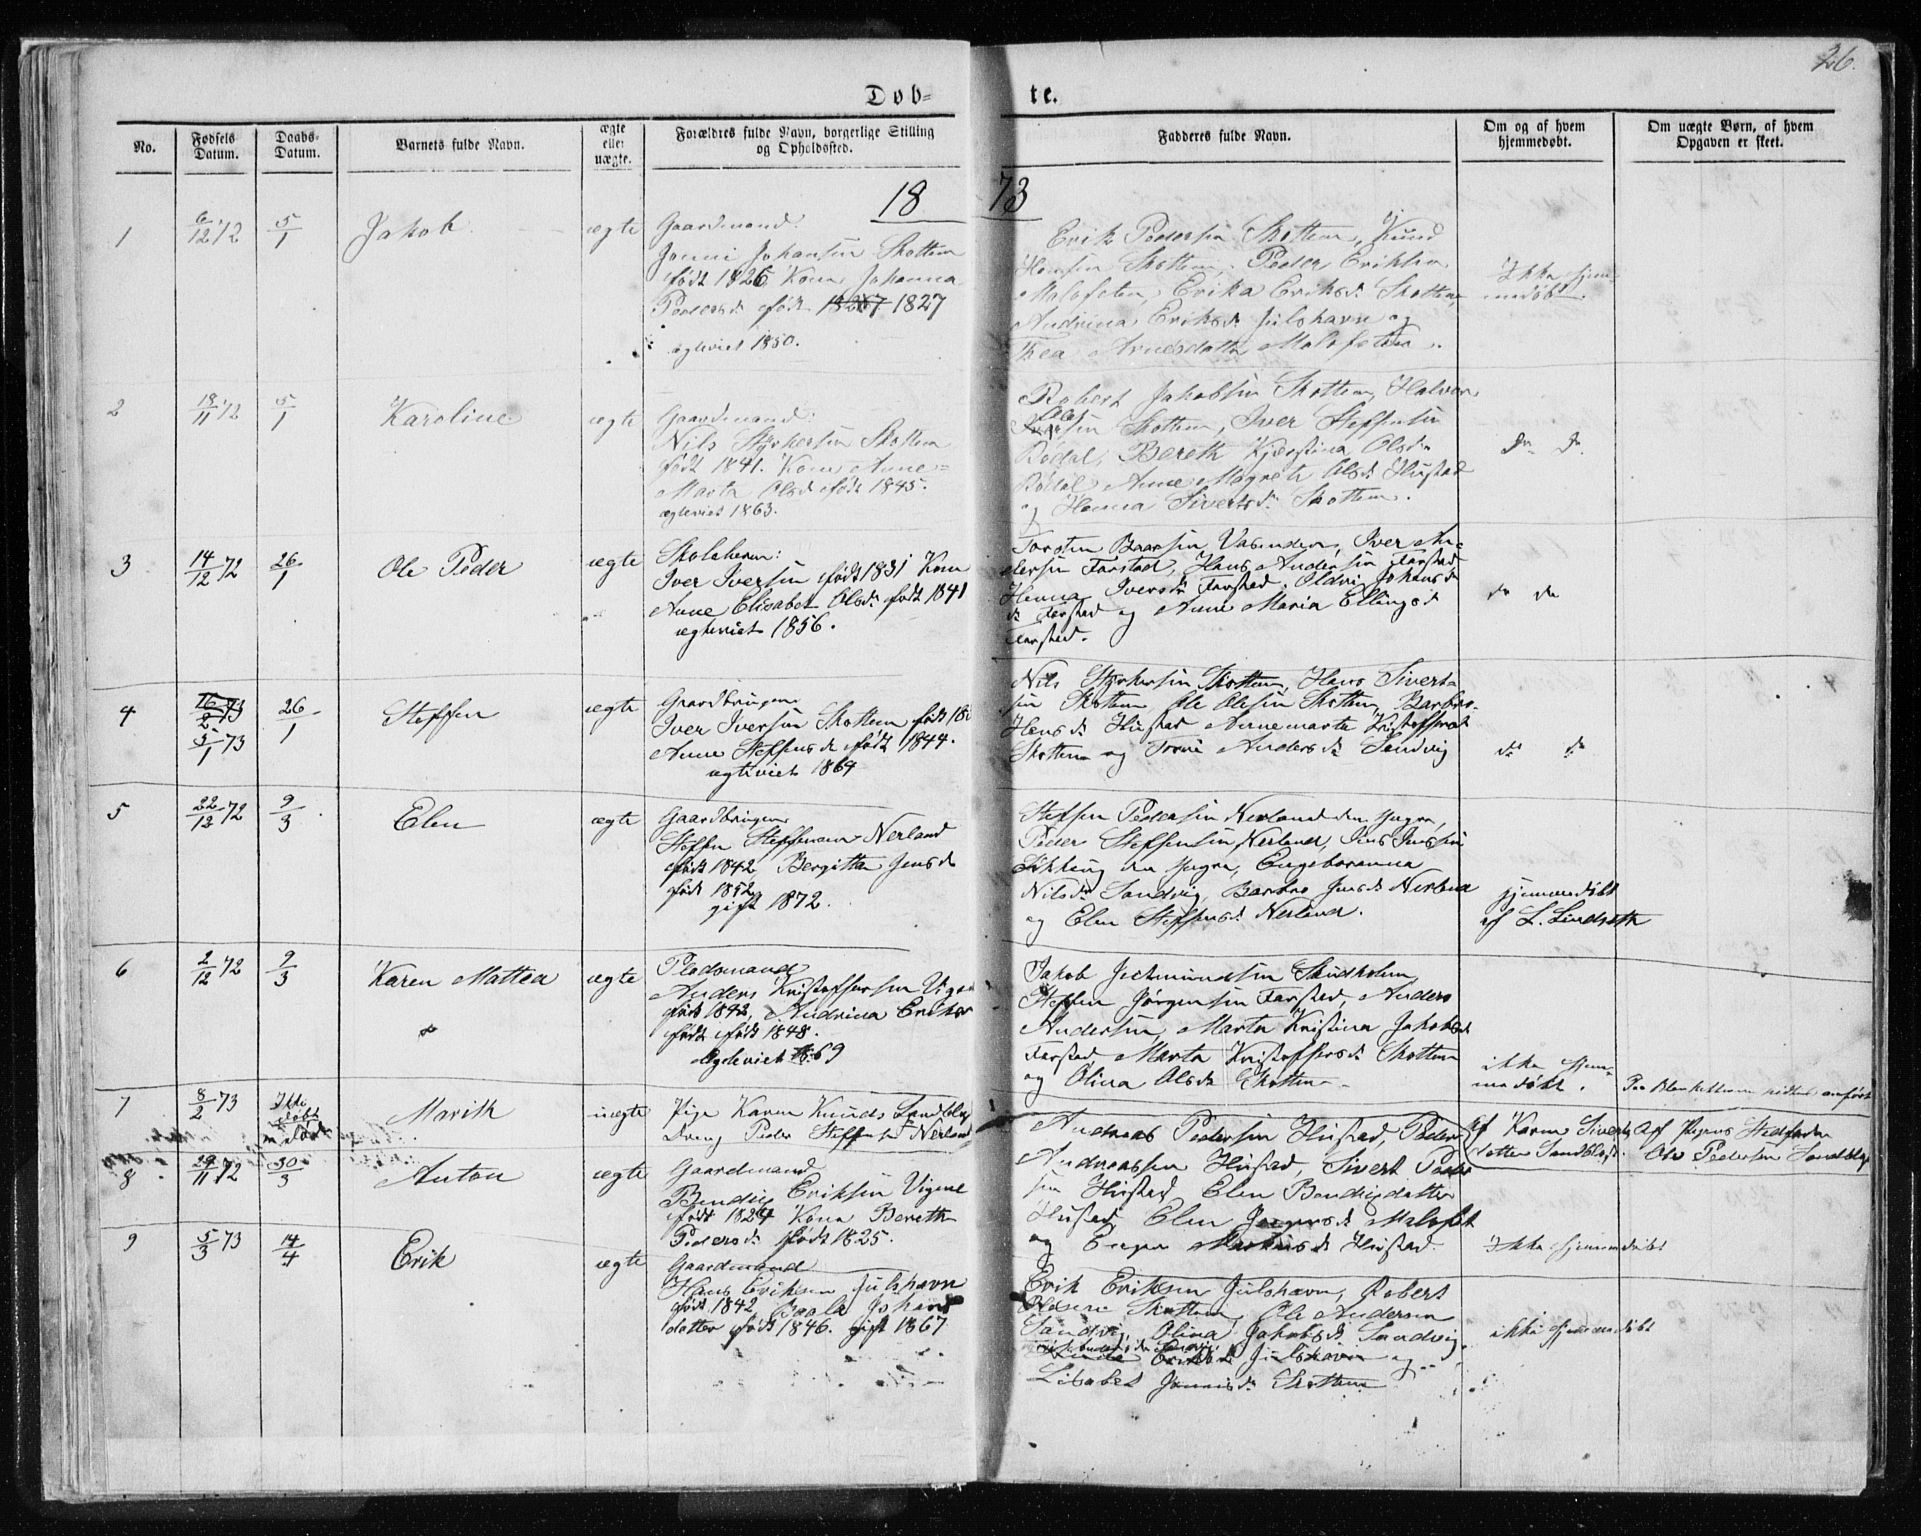 26.
Døb- te.
No. Fødsels Datum. Daabs- Datum. Barnets fulde Navn. ægte eller uægte. Forældres fulde Navn, borgerlige Stilling og Opholdssted. Fadderes fulde Navn. Om og af hvem hjemmedøbt. Om uægte Børn, af hvem Opgaven er skeet.
18 73
1 6/12 72 5/1 Jakob ægte Gaardmand
Jonni Johansen Skottem
født 1826 Kone Johanna
Pedersd. født 1827
ægteviet 1850.
Erik Pedersen Skottem, Knud
Hansen Skottem, Peder Eriksen
Malefeten, Erika Eriksd. Skottem,
Andrina Eriksd. Julshavn og
Thea Arnesdatter Malefeten.
Ikke hjem-
medøbt.
2 18/11 72 5/1 Karoline ægte Gaardmand
Nils Styrkersen Skottem
født 1841. Kone Anne
Marta Olsd. født 1845.
ægteviet 1863.
Robert Jakobsen Skottem, Halvor
Olesen Skottem, Iver Steffensen
Bødal, Bereth Kjerstina Olsd.
Bødal, Anne Magrete Olsd. Hustad
og Hanna Sivertsd. Skottem.
do do
3 14/12 72 26/1 Ole Peder ægte Skolelærer:
Iver Iversen født 1831 Kone
Anne Elisabet Olsd. født 1841
ægteviet 1856.
Torsten Baarsen Vasenden, Iver An-
dersen Farstad, Hans Andersen Farstad
Hanna Iversd. Farstad, Oldri Johansd.
Farstad og Anne Maria Ellingsd.
Farstad.
do do
4 16/2 73 26/1 Steffen ægte Gaardbruger
5/1 73
Iver Iversen Skottem født 18
Anne Steffensd. født 1844.
ægteviet 1869
Nils Styrkersen Skottem, Hans Sivert-
sen Skottem, Ole Olesen Skottem, Barbro
Hansd. Hustad Annemarte Kristoffersd.
Skottem og Andersd. Sandvig
do do
5 22/12 72 9/3 Elen ægte Gaardbruger
Steffen Steffensen Nerland
født 1842, Bergitta Jensd.
født 1852
gift 1872.
Steffen Pedersen Nerland den yngre,
Peder Steffensen Nerland, Jens Jensen
den yngre, Engeboranna
Nilsd. Sandvig, Barbro Jensd. Nerland
og Elen Steffensd. Nerland.
hjemmedøbt
af L. Lindseth
6 2/12 72 9/3 Karen Mattea ægte Pladsmand
Anders Kristoffersen Vigen
født 1842, Andrina Eriksd.
født 1848.
Ægteviet 1869
Jakob Jetmundsen Sandholm,
Steffen Jørgensen Farstad, Anders
Andersen, Marta Kristina Jakobsd.
Farstad, Marta Kristoffersd. Skottem
og Olina Olsd. Skottem.
ikke hjem-
medøbt.
7 8/2 73 Ikke døbt Marith uægte Pige Karen Knudsd. Sandblast
Dreng Peder Steffensen Nerland
Af Karen Siverts
datter Sandblast.
Af Pigens Stedfader
Ole Pedersen Sandblast
8 29/11 72 30/3 Anton ægte Gaardmand
Bendrig Eriksen Vigene
født 1824 Kone Bereth
Pedersd. født 1825.
Andreas Pedersen Hustad, Peder
Andreassen Hustad, Sivert Peder
sen Hustad Elen Bendrigsdatter
Hustad, Elen Malefet
og Hustad.
Ikke hjemmedøbt
9 5/3 73 14/4 Erik ægte Gaardmand
Hans Eriksen Julshavn
født 1842, Johans
datter født 1846. gift 1867
Erik Eriksen Julshavn, Robert
Skottem, Ole Andersen
Sandvig, Olina Jakobsd. Sandvig,
Eriksd. Julshavn og
Lisabet Jonnisd. Skottem
ikke hjemmedøbt